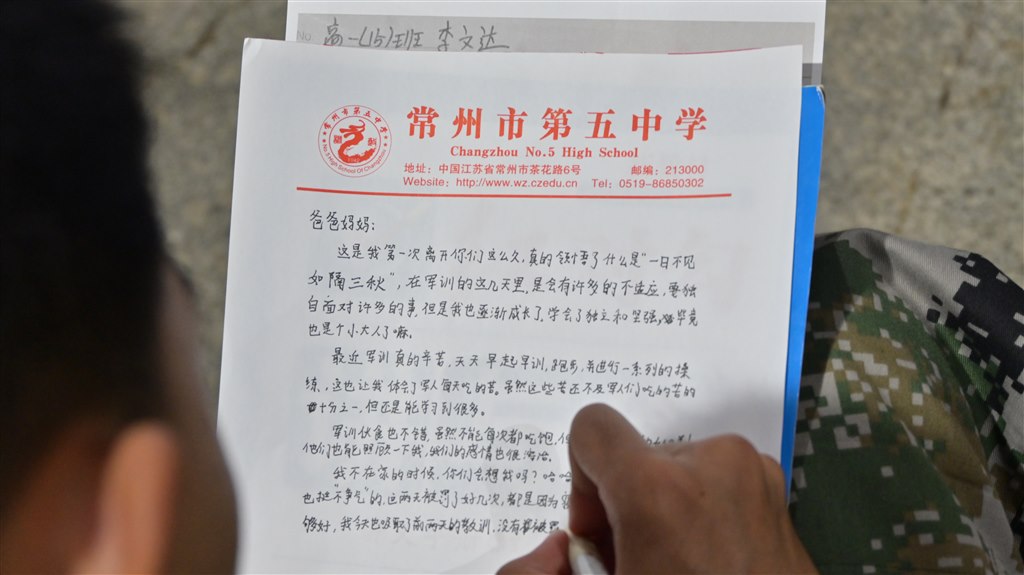 高一(15)班 李文达
常州市第五中学
常州市第五中学
No.5 High School Of Changzhou
Changzhou No.5 High School
地址：中国江苏省常州市茶花路6号 邮编：213000
Website：http://www.wz.czedu.cn Tel：0519-86850302
爸爸妈妈：
这是我第一次离开你们这么久，真的领悟了什么是“一日不见
如隔三秋”，在军训的这几天里，是会有许多的不适应，要独
自面对许多的事，但是我也逐渐成长了，学会了独立和坚强，毕竟
也是个小大人了嘛。
最近军训真的辛苦，天天早起早训，跑步，并进行一系列的操
练，这也让我体会了军人每天吃的苦。虽然这些苦还不及军人们吃的苦的
十分之一，但还是能学习到很多。
军训伙食也不错，虽然不能每次都吃饱，但
他们也能照顾一下我，我们的感情也很
我不在家的时候，你们会想我吗？哈哈
也挺“争气”的，这两天被罚了好几次，都是因为
够好，我们也吸取了前两天的教训，没有